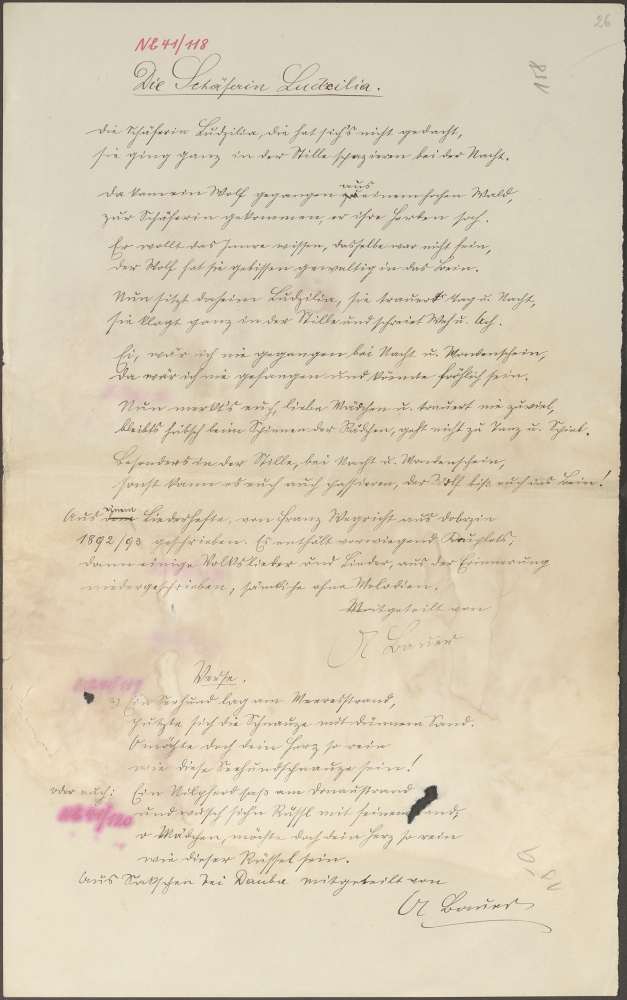 26
NL 41/118
158
Die Schäferin Ludzilia.
Die Schäferin Ludzilia, die hat sich's nicht gedacht,
sie ging ganz in der Stille spazieren bei der Nacht.
Da kam ein Wolf gegangen aus einem hohen Wald,
zur Schäferin gekommen, er ihre Herden sah.
Er wollt das Innre wissen, dasselbe war nicht fein,
der Wolf hat sie gebissen gewaltig in das Bein.
Nun sitzt daheim Ludzilia, sie trauert Tag u. Nacht,
sie klagt ganz in der Stille und schreiet Weh u. Ach.
Ei, wär ich nie gegangen bei Nacht u. Mondenschein,
Da wär ich nie gefangen und könnte fröhlich sein.
Nun merkt's euch, liebe Mädchen u. trauert nie zuviel,
bleibts hübsch beim Spinnen der Rädchen, geht nicht zu Tanz u. Spiel.
Besonders in der Stille, bei Nacht u. Mondenschein,
sonst kann es euch auch passieren, der Wolf biß euch ins Bein!
Aus einem Liederhefte, von Franz Wegricht aus Dobrzin
1892/93 geschrieben. Es enthält vorwiegend Kouplets,
dann einige Volkslieder und Lieder, aus der Erinnerung
niedergeschrieben, sämtliche ohne Melodien.
Mitgeteilt von
A Bauer
Verse.
Ein Seehund lag am Meeresstrand,
putzte sich die Schnauze mit dünnem Sand.
O möchte doch dein Herz so rein
wie diese Seehundschnauze sein!
oder auch: Ein Nilpferd saß am Donaustrand
und wusch sich'n Rüssl mit seinem
o Mädchen, möchte doch dein Herz so rein
wie dieser Rüssel sein.
NL 41/120
Aus Sakschen bei Dauba mitgeteilt von
A Bauer